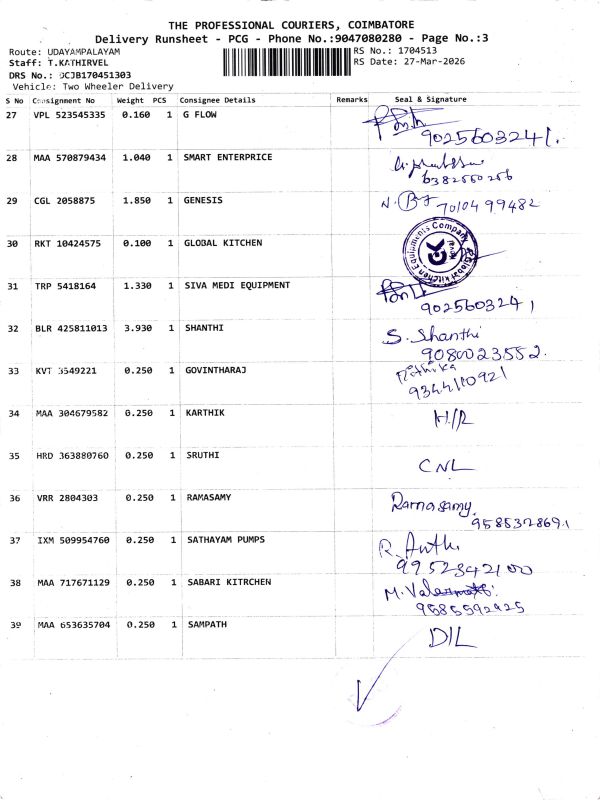 THE PROFESSIONAL COURIERS, COIMBATORE
Delivery Runsheet - PCG - Phone No.:9047080280 - Page No.:3
Route: UDAYAMPALAYAM
RS No.: 1704513
Staff: T.KATHIRVEL
RS Date: 27-Mar-2026
DRS No.: DCJB170451303
Vehicle: Two Wheeler Delivery
S No Consignment No Weight PCS Consignee Details Remarks Seal & Signature
27 VPL 523545335 0.160 1 G FLOW
9025603241.
28 MAA 570879434 1.040 1 SMART ENTERPRICE
6382560256
29 CGL 2058875 1.850 1 GENESIS N. 7010499482
30 RKT 10424575 0.100 1 GLOBAL KITCHEN
Global Kitchen Equipments Company
GK
31 TRP 5418164 1.330 1 SIVA MEDI EQUIPMENT
9025603241
32 BLR 425811013 3.930 1 SHANTHI S. Shanthi
9080023552.
33 KVT 3549221 0.250 1 GOVINTHARAJ Rithika
9344110921
34 MAA 304679582 0.250 1 KARTHIK H/R
35 HRD 363880760 0.250 1 SRUTHI CNL
36 VRR 2804303 0.250 1 RAMASAMY Ramasamy.
9585378691
37 IXM 509954760 0.250 1 SATHAYAM PUMPS R.
9952342100
38 MAA 717671129 0.250 1 SABARI KITRCHEN M.
9585592925
39 MAA 653635704 0.250 1 SAMPATH DIL